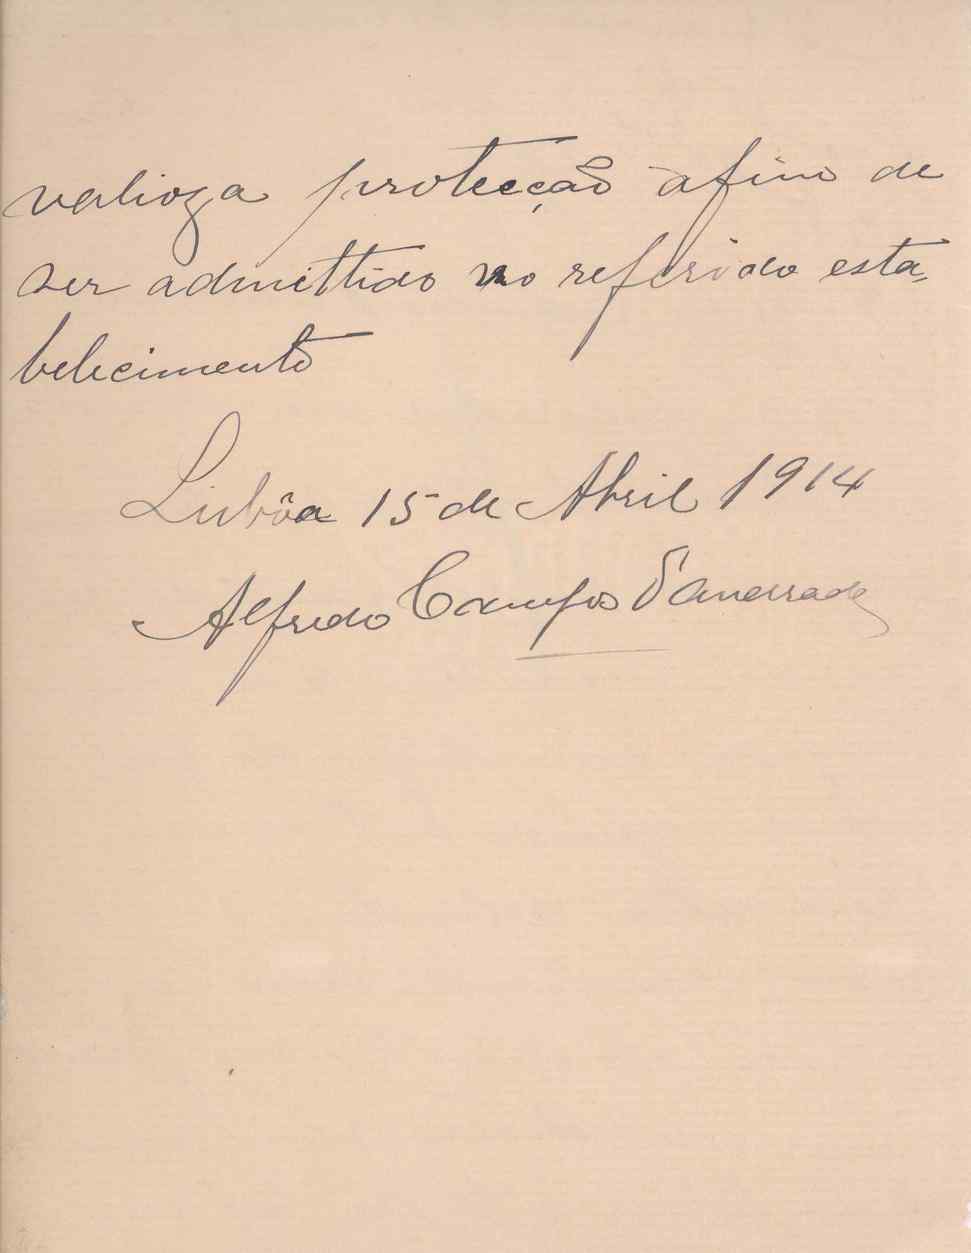 valioza protecção afim de
ser admittido no referido esta-
belecimento
Lisbôa 15 de Abril 1914
Alfredo Campos d'Andrade